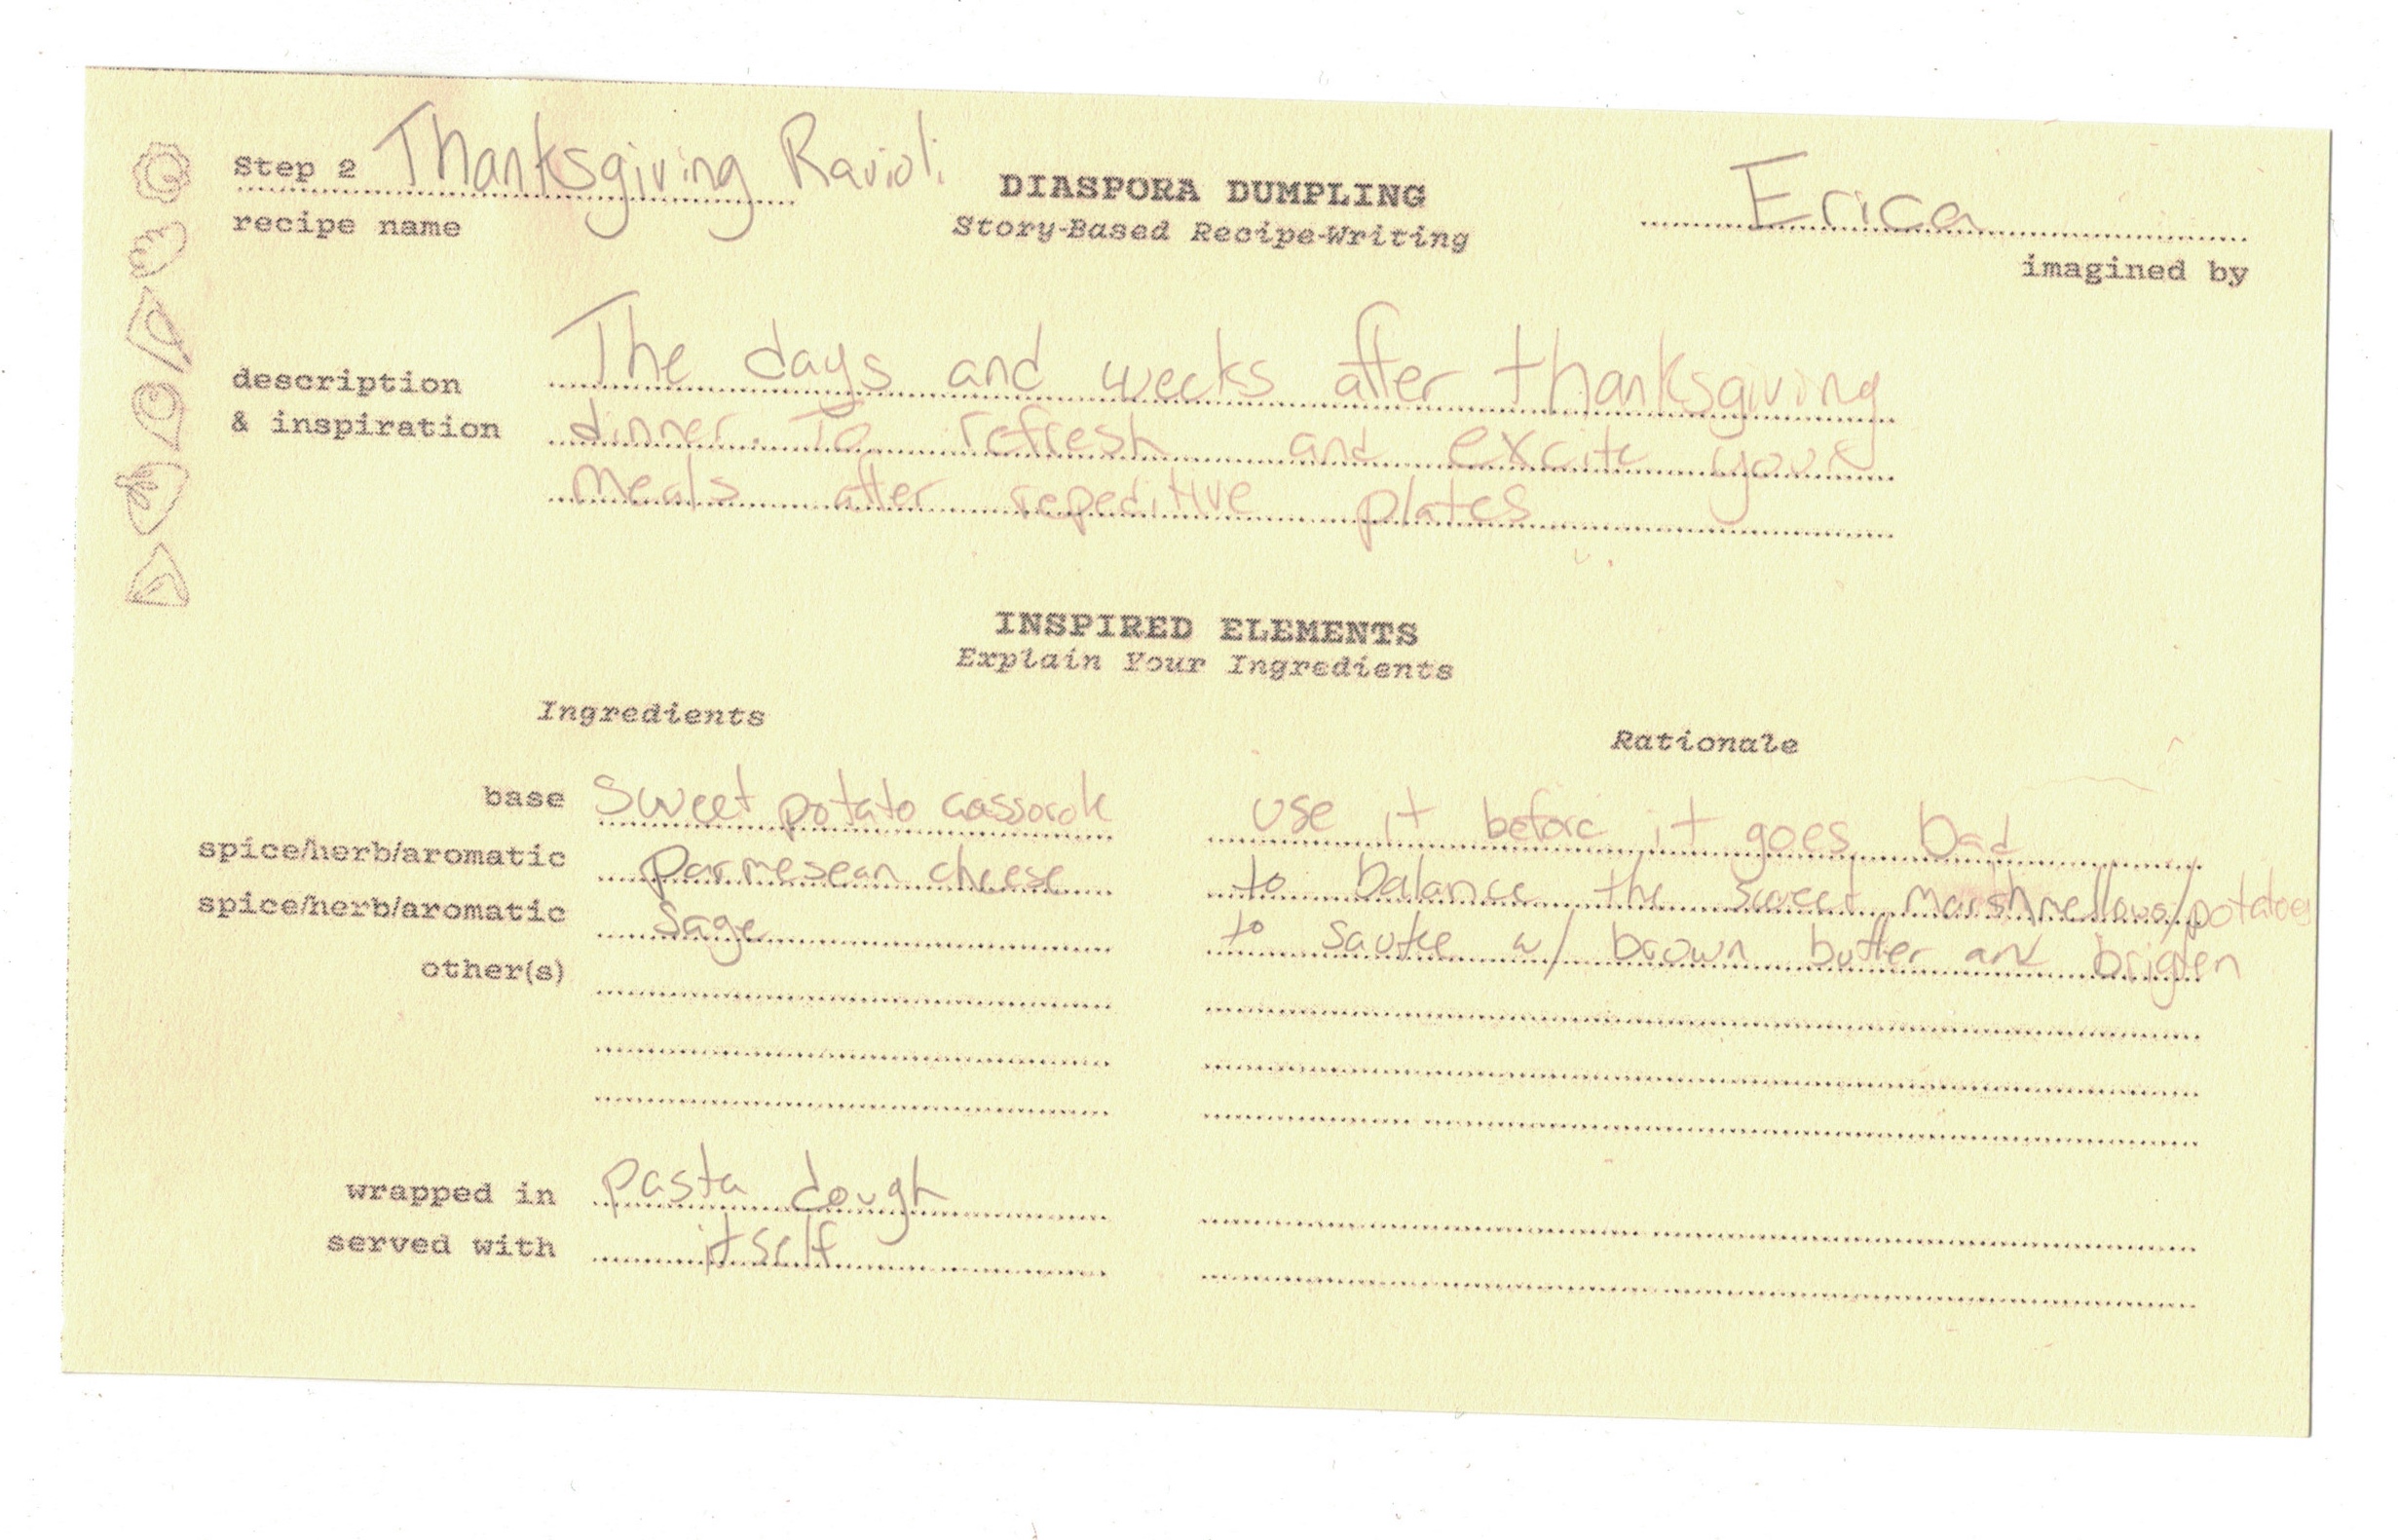 Step 2 Thanksgiving Ravioli
recipe name
DIASPORA DUMPLING
Story-Based Recipe-Writing
Erica
imagined by
description
& inspiration
The days and weeks after thanksgiving
dinner. To refresh and excite your
meals after repeditive plates
INSPIRED ELEMENTS
Explain Your Ingredients
Ingredients
Rationale
base sweet potato cassorole use it before it goes bad
spice/herb/aromatic parmesean cheese to balance the sweet marshmellows/potatoes
spice/herb/aromatic sage to sautee w/ brown butter and brigten
other(s)
wrapped in pasta dough
served with itself